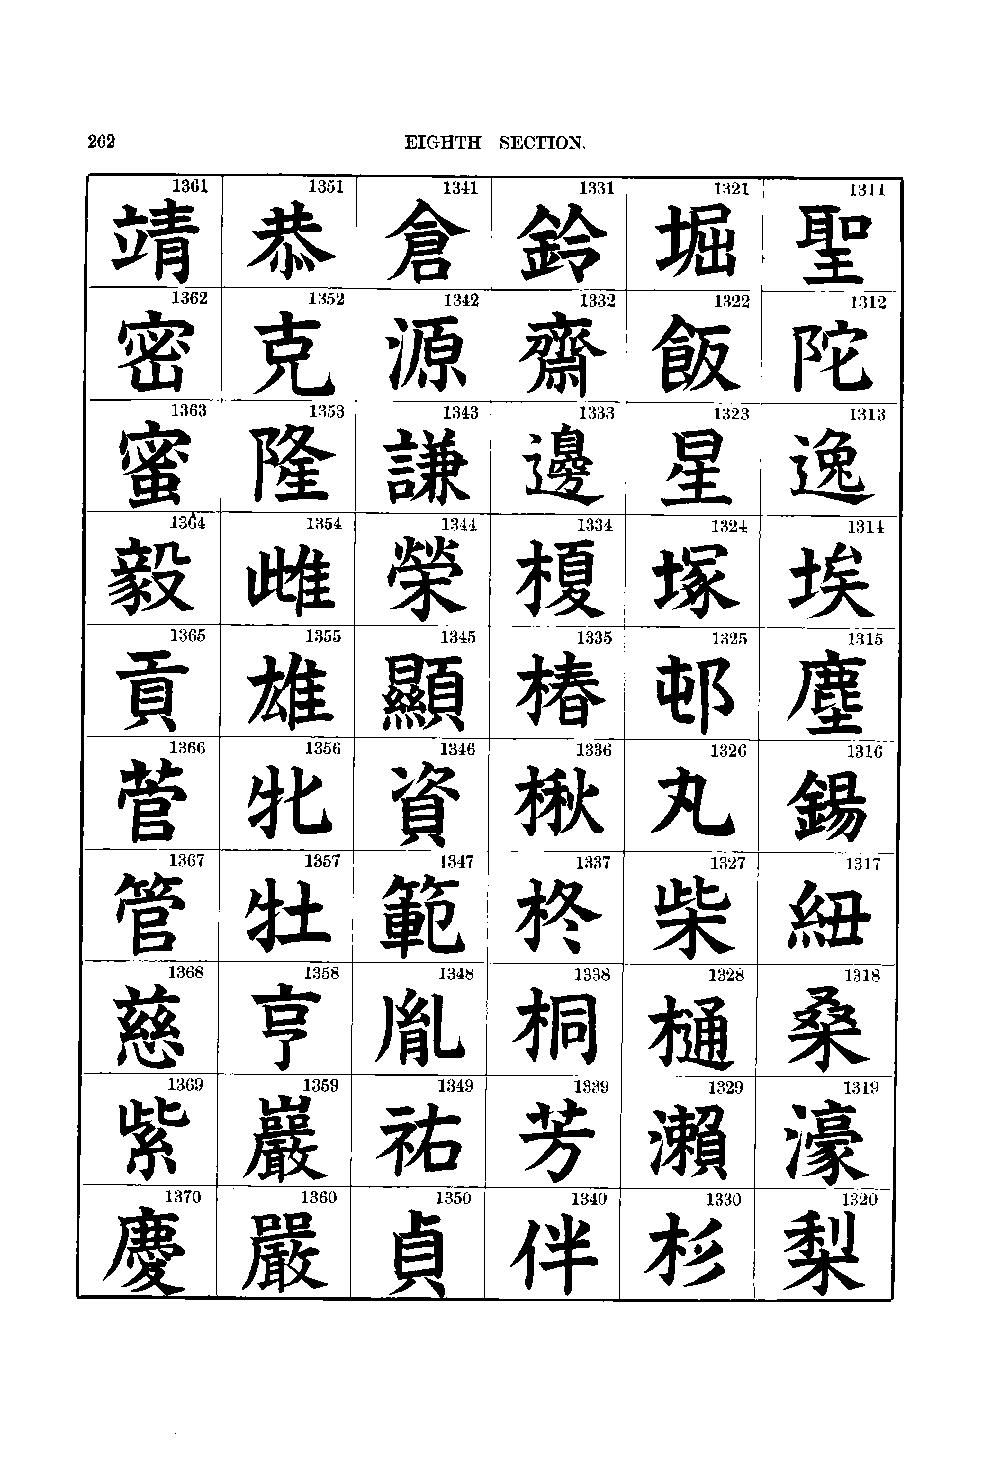 262 EIGHTH SECTION.
1361 1351 1341 1331 1321 1311
靖 恭 倉 鈴 堀 聖
1362 1352 1342 1332 1322 1312
密 克 源 齋 飯 陀
1363 1353 1343 1333 1323 1313
蜜 隆 謙 邊 星 逸
1364 1354 1344 1334 1324 1314
毅 雌 榮 榎 塚 埃
1365 1355 1345 1335 1325 1315
貢 雄 顯 椿 邨 塵
1366 1356 1346 1336 1326 1316
菅 牝 資 楸 丸 錫
1367 1357 1347 1337 1327 1317
管 牡 範 柊 柴 紐
1368 1358 1348 1338 1328 1318
慈 亨 胤 桐 樋 桑
1369 1359 1349 1339 1329 1319
紫 巖 祐 芳 瀨 濠
1370 1360 1350 1340 1330 1320
慶 嚴 貞 伴 杉 梨